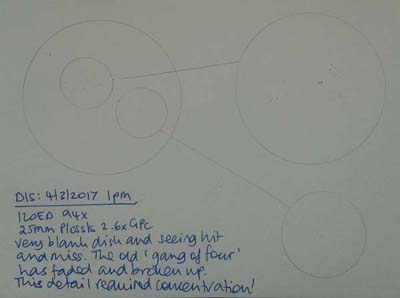 DIS: 4/2/2017 1pm
120ED 94x
25mm Plossls 2.6x GPC
very blank dish and seeing hit
and miss. The old 'gang of four'
has faded and broken up.
This detail required concentration!